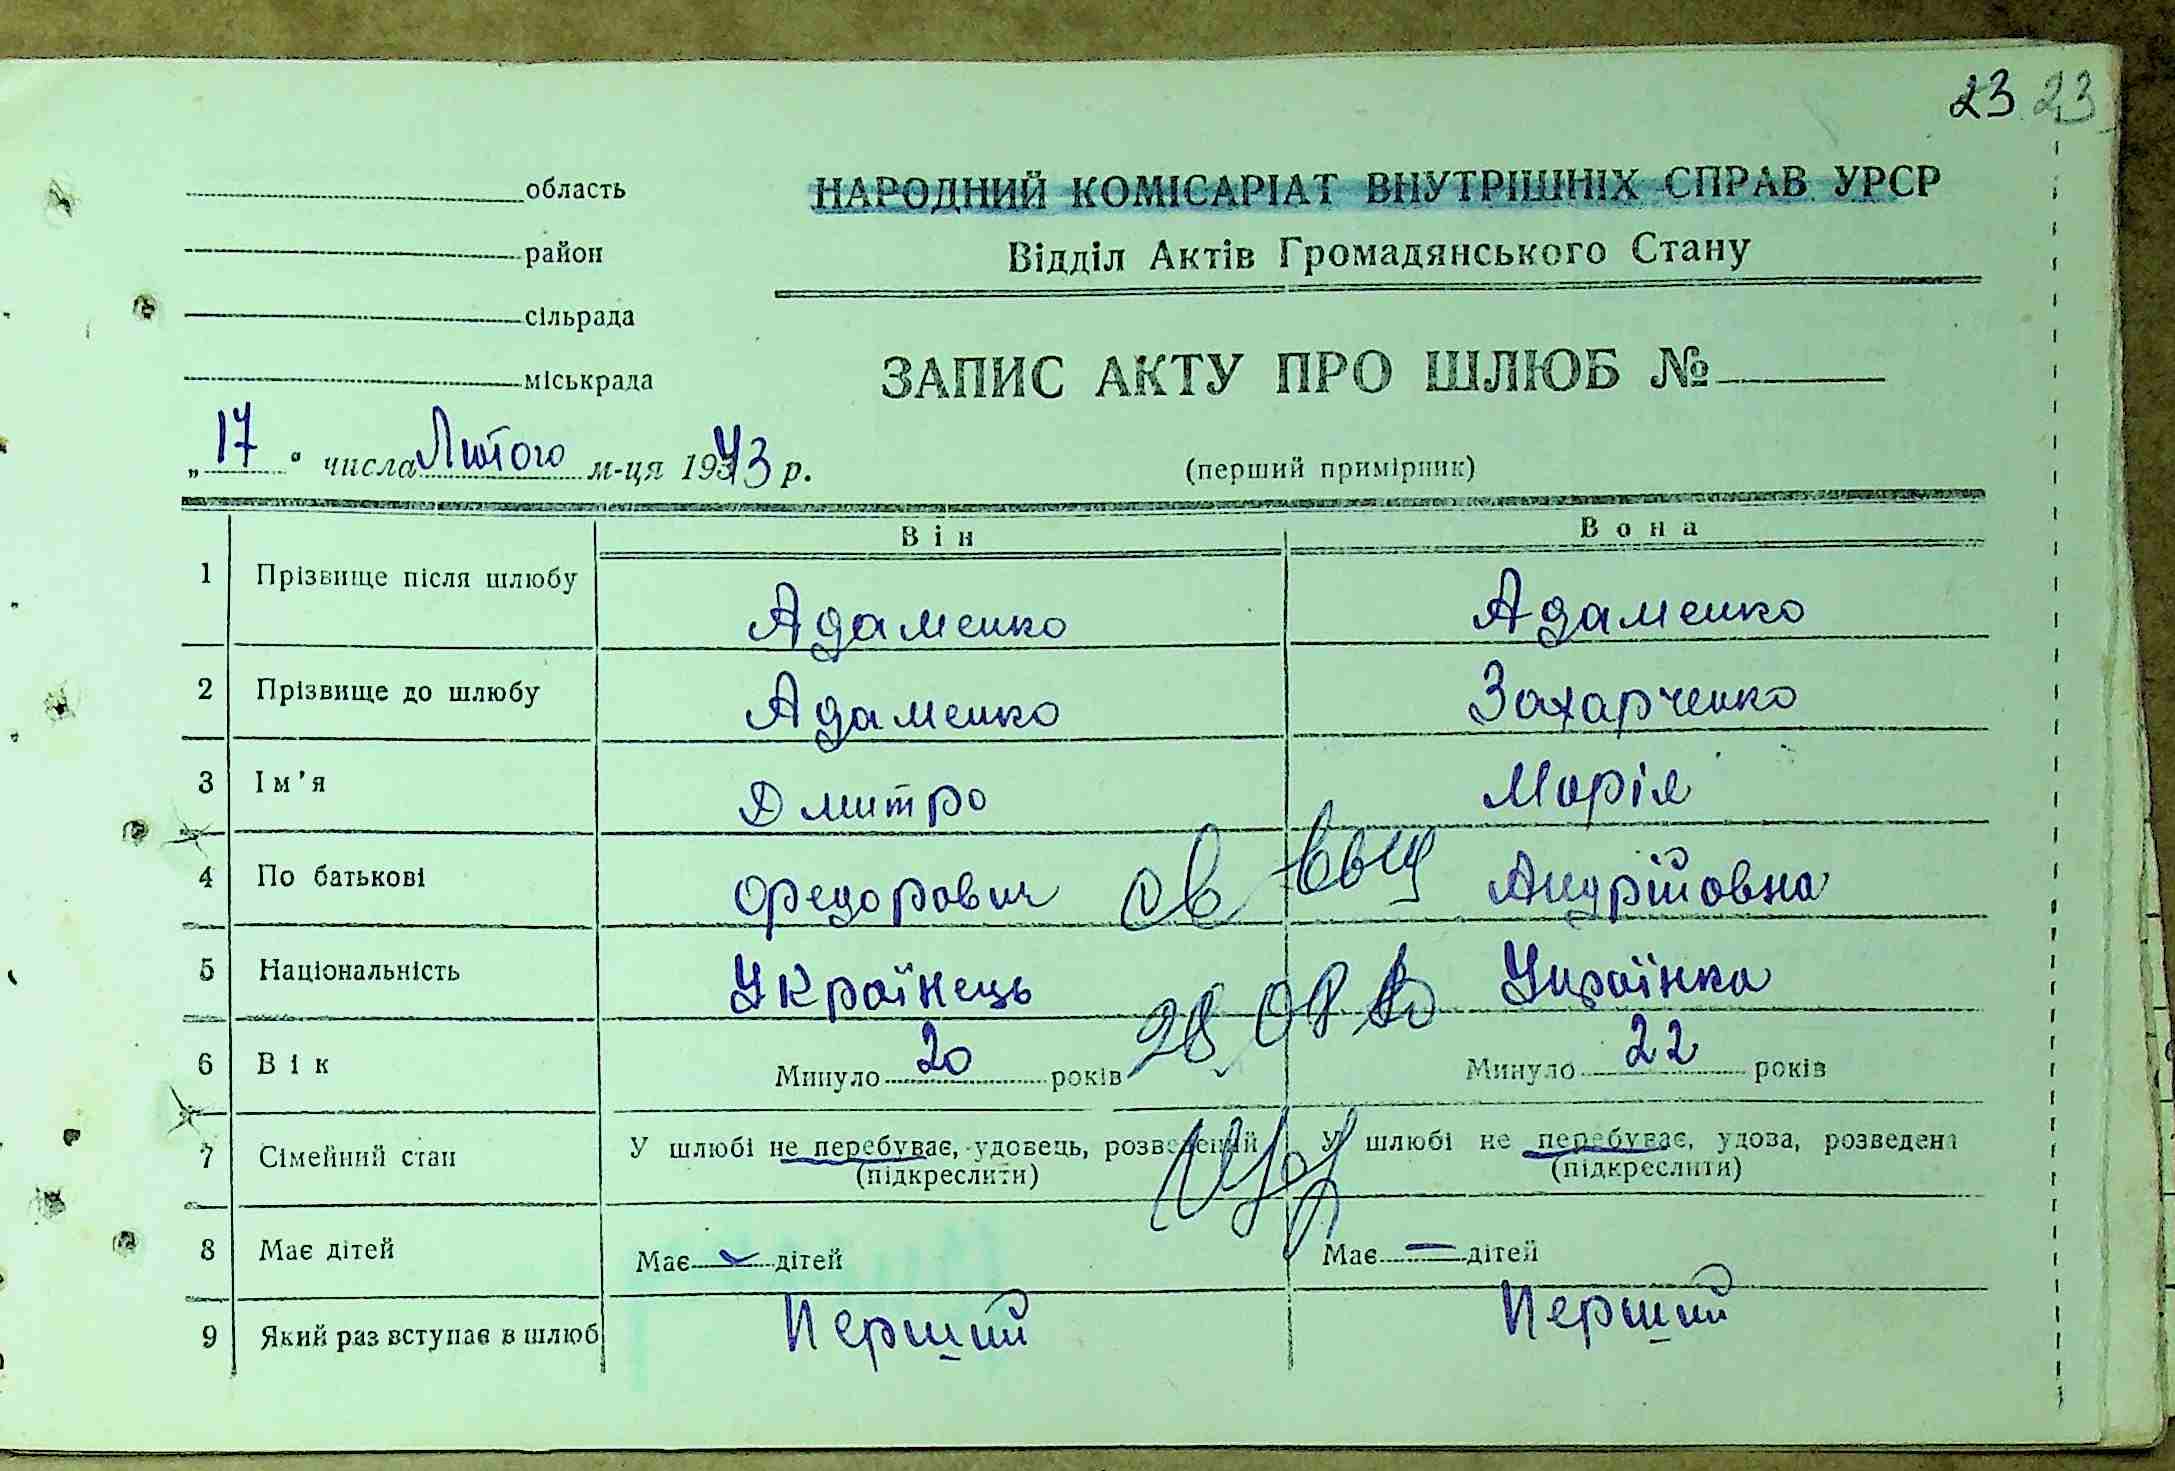 23 23
область
НАРОДНИЙ КОМІСАРІАТ ВНУТРІШНІХ СПРАВ УРСР
район
Відділ Актів Громадянського Стану
сільрада
міськрада
ЗАПИС АКТУ ПРО ШЛЮБ №
„17“ числа Лютого м-ця 1943 р.
(перший примірник)
Він Вона
1 Прізвище після шлюбу Адаменко Адаменко
2 Прізвище до шлюбу Адаменко Захарченко
3 Ім'я Дмитро Марія
4 По батькові Федорович Андрійовна
св выд
5 Національність Українець Українка
28 08
6 Вік Минуло 20 років Минуло 22 років
7 Сімейний стан У шлюбі не перебуває, удовець, розведений У шлюбі не перебуває, удова, розведена
(підкреслити) (підкреслити)
8 Має дітей Має - дітей Має - дітей
9 Який раз вступає в шлюб Перший Перший